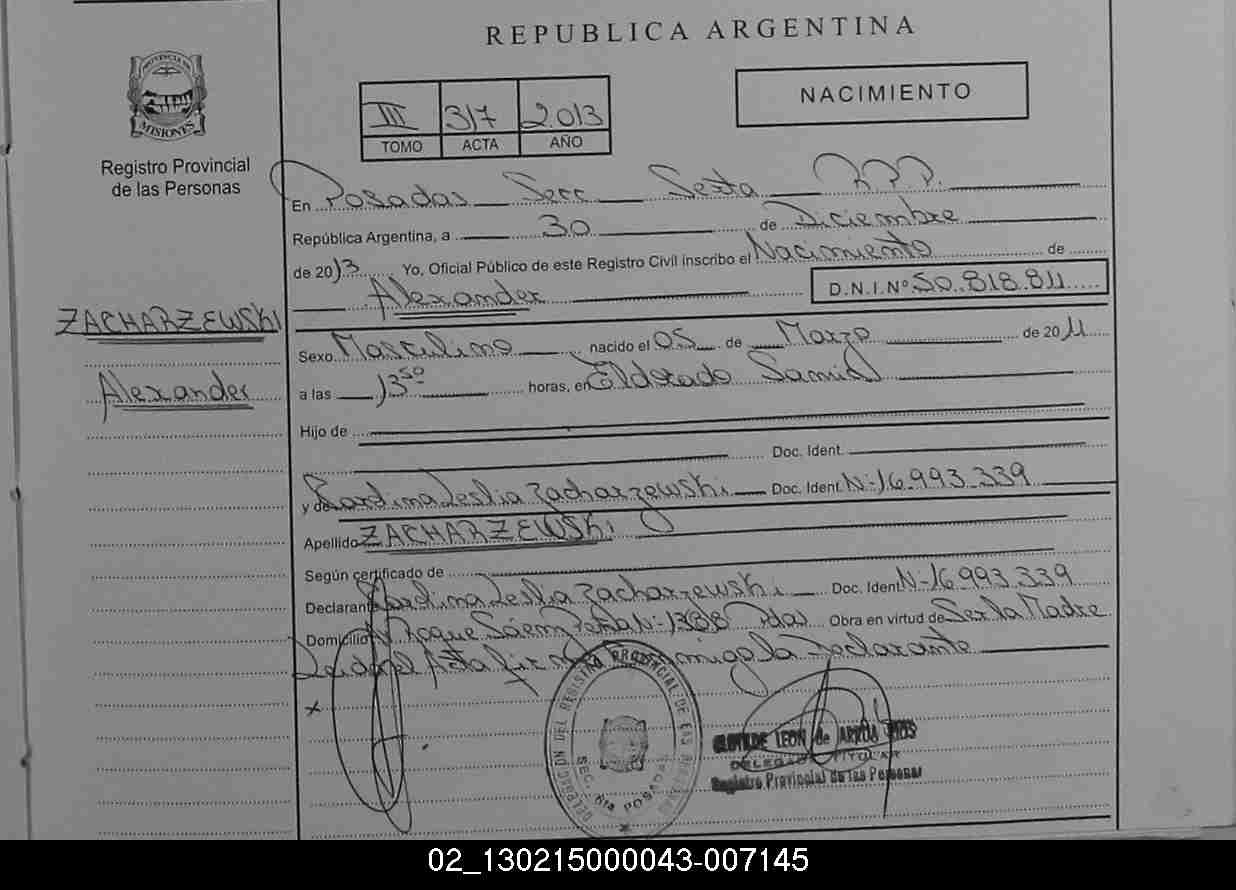 REPUBLICA ARGENTINA
PROVINCIA DE
MISIONES
Registro Provincial
de las Personas
III 317 2.013
TOMO ACTA AÑO
NACIMIENTO
En Posadas Secc Sexta R.P.P.
República Argentina, a 30 de Diciembre
de 2013 Yo, Oficial Público de este Registro Civil inscribo el Nacimiento de
Alexander D.N.I.Nº 50.818.811
ZACHARZEWSKI
Alexander
Sexo Masculino nacido el 05 de Marzo de 2011
a las 13⁵⁰ horas, en Eldorado
Hijo de
Doc. Ident.
y de Leslia Zacharzewski Doc. Ident. N-16.993.339
Apellido ZACHARZEWSKi
Según certificado de
Declarante Leslia Zacharzewski Doc. Ident N-16.993.339
Domicilio Roque Sáenz Peña N- 1388 Pdas Obra en virtud de Ser la Madre
Leida el Acta la Declarante
x
DELEGACIÓN DEL REGISTRO PROVINCIAL DE LAS PERSONAS
SEC. 6ta POSADAS
LEON de
DELEGADA TITULAR
Registro Provincial de las Personas
02_130215000043-007145